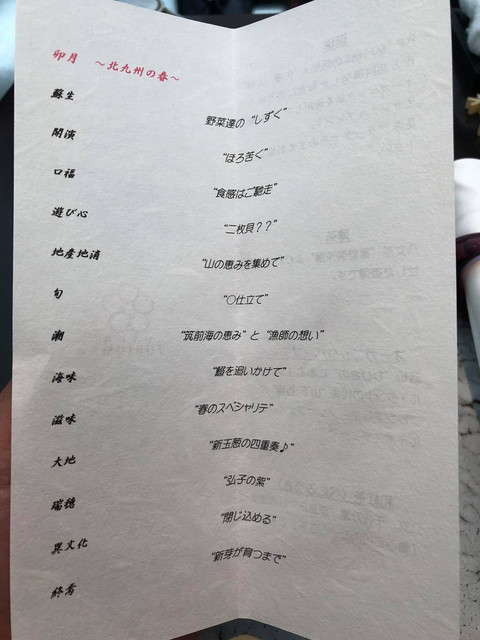 卯月　～北九州の春～
蘇生
野菜達の“しずく”
開演
“ほろ苦く”
口福
“食感はご馳走”
遊び心
“二枚貝？？”
地産地消
“山の恵みを集めて”
旬
“〇仕立て”
潮
“筑前海の恵み”と“漁師の想い”
海味
を追いかけて”
滋味
“春のスペシャリテ”
大地
“新玉葱の四重奏♪”
瑞穂
“弘子の紫”
異文化
“閉じ込める”
終焉
“新芽が育つまで”